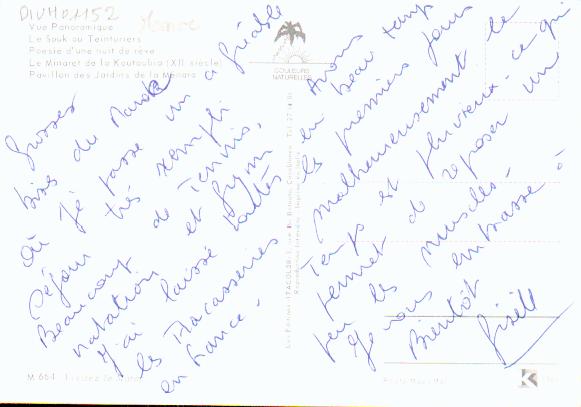 DIVH01152
Maroc
Vue Panoramique
Le Souk au Teinturiers
Poesie d'une nuit de rêve
Le Minaret de la Koutoubia (XII siècle)
Pavillon des Jardins de la Ménara
COULEURS
NATURELLES
Grosses
bises du Maroc
Où je passe un agréable
séjour très rempli
Beaucoup de Tennis,
natation et gym
J'ai laissé toutes
les tracasseries
en France -
Avons
eu beau temps
les premiers jours
malheureusement le
temps est pluvieux - ce qui
permet de reposer un
peu les muscles -
Je vous embrasse à
Bientôt
Gisèle
Les Editions ITACOLOR
M-664
K